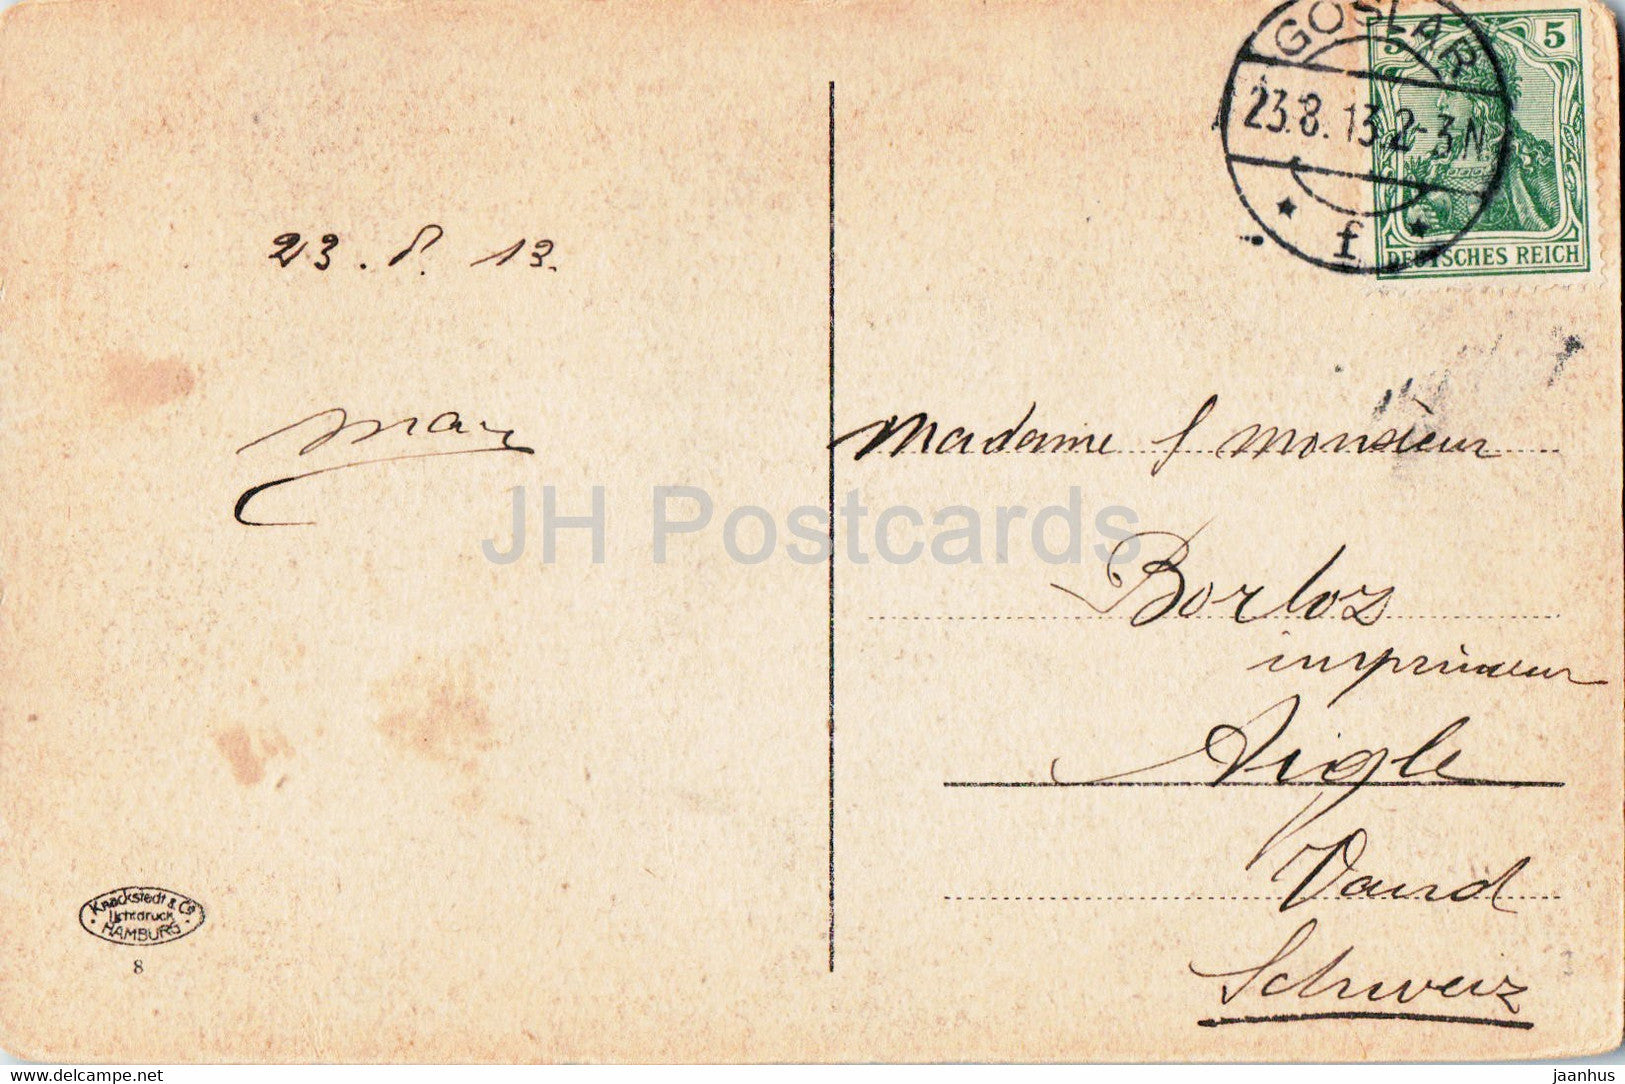 GOSLAR
23.8.13.2-3N
* f *
5 5
DEUTSCHES REICH
23. 8. 13.
Max
Madame & Monsieur
Borloz
imprimeur
Aigle
Vaud
Schweiz
JH Postcards
Knackstedt & Co
Lichtdruck
HAMBURG
8
Delcampe.net
jaanhus